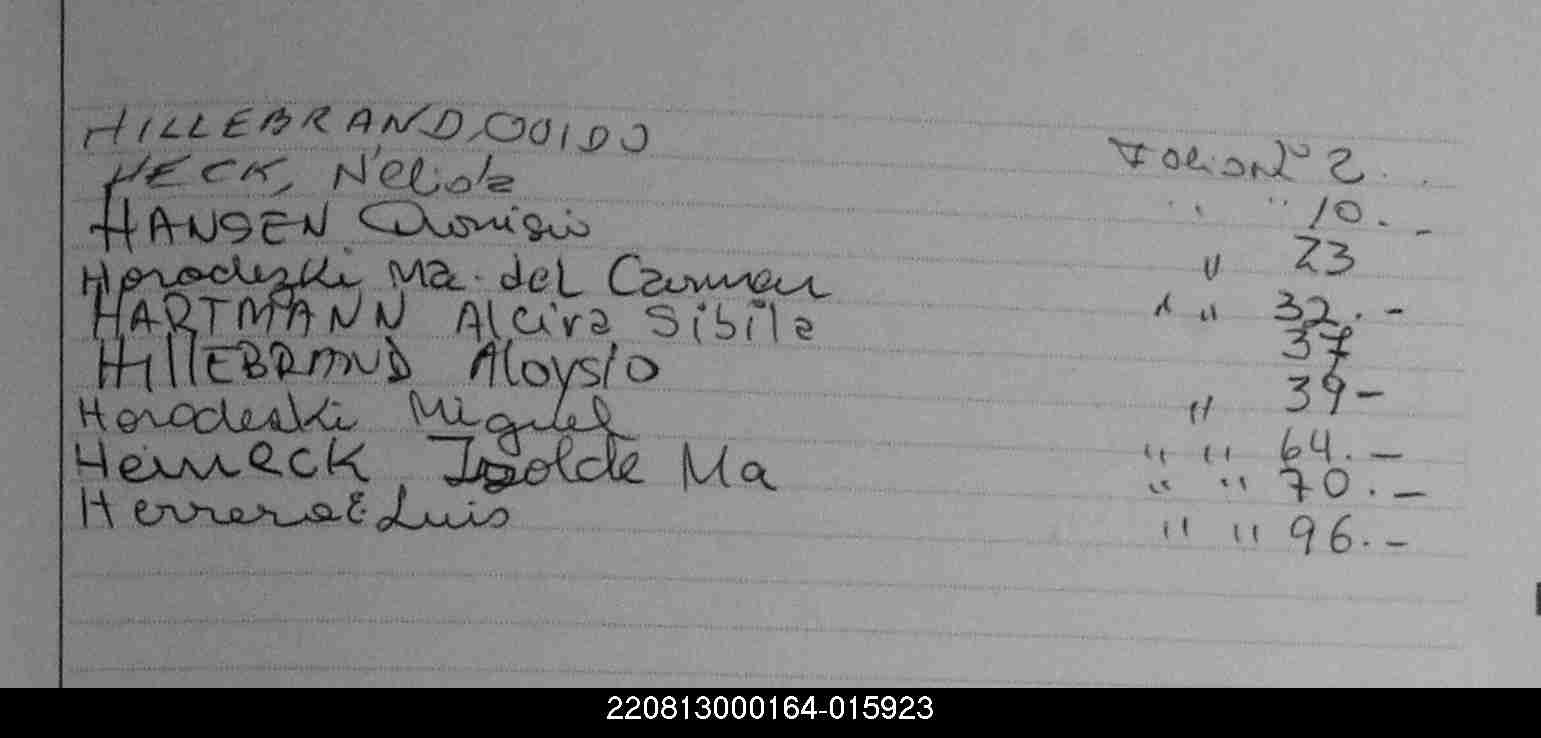 HILLEBRAND, GUIDO Folio Nº 2.
HECK, Nélida " " 10.-
HANSEN Dionisio " 23
Horodezki Ma. del Carmen " " 32.-
HARTMANN Alcira Sibila 37
HIllEBRAND Aloysio " 39-
Horodeski Miguel " " 64.-
Heineck Isolde Ma " " 70.-
Herrera E Luis " " 96.-
220813000164-015923